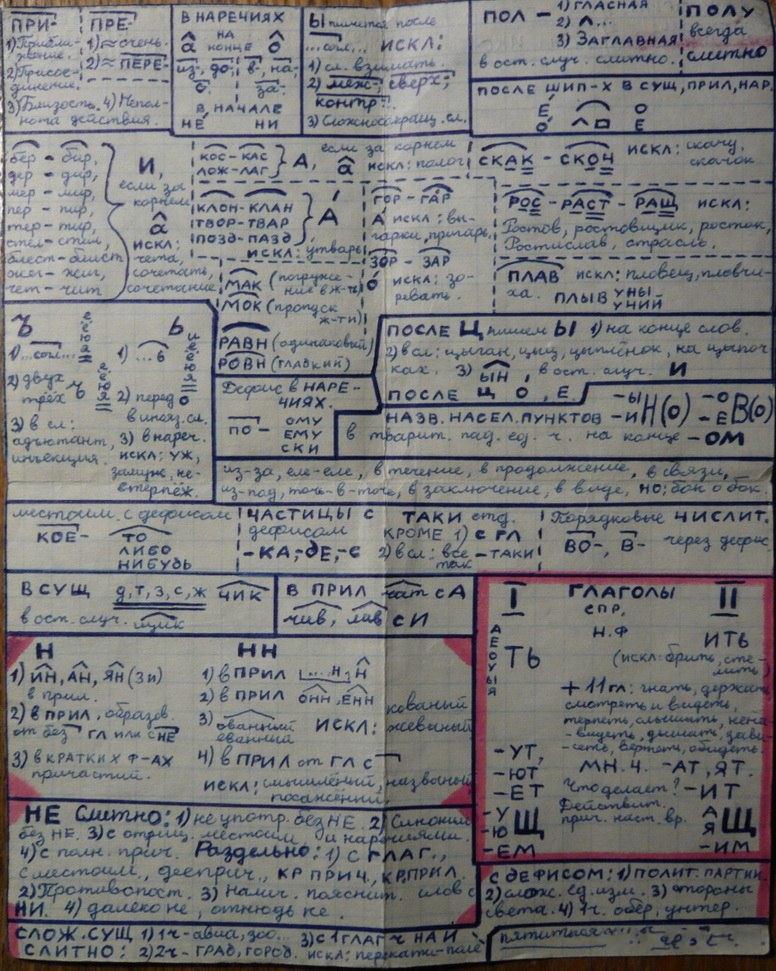 ПРИ-
1) Прибли-
жение.
2) Присое-
динение.
3) Близость. 4) Непол-
нота действия.
ПРЕ-
1) ≈ очень.
2) ≈ ПЕРЕ-
В НАРЕЧИЯХ
НА
а КОНЦЕ о
из-, до-, в-, на-,
с- за-
В НАЧАЛЕ
НЕ НИ
Ы пишется после
...согл... ИСКЛ:
1) сл. взимать.
2) меж-, сверх-,
контр-.
3) Сложносокращ. сл.
ПОЛ - 1) ГЛАСНАЯ
2) Л...
3) ЗАГЛАВНАЯ
в ост. случ. слитно.
ПОЛУ
всегда
слитно
ПОСЛЕ ШИП-Х В СУЩ, ПРИЛ, НАР.
Ё О
О Е
бер - бир,
дер - дир,
мер - мир,
пер - пир,
тер - тир,
стел - стил,
блест - блист
жег - жиг,
чет - чит
И,
если за
корнем
а
ИСКЛ:
чета,
сочетать,
сочетание
КОС - КАС
ЛОЖ - ЛАГ
А, если за корнем
а искл: полог
СКАК - СКОЧ искл: скачу,
скачок
КЛОН - КЛАН
ТВОР - ТВАР
ПОЗД - ПАЗД
А
ИСКЛ: утварь
ГОР - ГАР
А искл: вы-
гарки, пригарь.
ЗОР - ЗАР
О искл: зо-
ревать.
РОС - РАСТ - РАЩ искл:
Ростов, ростовщик, росток,
Ростислав, отрасль.
ПЛАВ искл: пловец, пловчи-
ха. ПЛЫВУНЫ-
УЧИЙ
МАК (погруже-
ние в ж-ть)
МОК (пропуск
ж-ти)
РАВН (одинаковый)
РОВН (гладкий)
Ъ
1) ...согл...
2) двух
трёх
3) в сл:
адъютант,
инъекция.
е
ё
ю
я
Ь
1) ...в
2) перед О
в инояз. сл.
3) в нареч.
искл: уж,
замуж, не-
втерпёж.
и
е
ё
ю
я
ПОСЛЕ Ц пишем Ы 1) на конце слов.
2) в сл: цыган, цыц, цыплёнок, на цыпоч
ках. 3) ЫН, в ост. случ. И
ПОСЛЕ Ц О, Е.
Дефис в НАРЕ-
ЧИЯХ.
ПО - ОМУ
ЕМУ
СКИ
НАЗВ. НАСЕЛ. ПУНКТОВ -Ы -И Н(О) -О -Е В(О)
в творит. пад. ед. ч. на конце -ОМ
из-за, еле-еле, в течение, в продолжение, в связи,
из-под, точь-в-точь, в заключение, в виде, НО: бок о бок.
местоим. с дефисом
КОЕ- ТО
ЛИБО
НИБУДЬ
ЧАСТИЦЫ С
дефисом
-КА, -ДЕ, -С
ТАКИ отд.
КРОМЕ 1) с ГЛ
2) в сл: все-таки
так
Порядковые ЧИСЛИТ.
ВО-, В- через дефис.
В СУЩ д, т, з, с, ж ЧИК
в ост. случ. щик
В ПРИЛ чат с А
чив, лив с И
Н
1) ИН, АН, ЯН (3 и)
в прил.
2) в ПРИЛ, образов.
от без ГЛ или с НЕ
3) в КРАТКИХ Ф-АХ
причастий.
НН
1) в ПРИЛ ...Н+Н
2) в ПРИЛ ОНН, ЕНН
3) ованный
еванный
ИСКЛ: кованый
жеваный
4) в ПРИЛ от ГЛ с
искл: смышлёный, названый
посажёный.
I ГЛАГОЛЫ II
СПР.
Н.Ф
А
Е
О
У
Ы
Я
ТЬ
ИТЬ
(искл: брить, сте-
лить)
+ 11 гл: гнать, держать
смотреть и видеть,
терпеть, слышать, нена-
видеть, дышать, зави-
сеть, вертеть, обидеть.
-УТ,
-ЮТ
МН. Ч. -АТ, ЯТ.
-ЕТ Что делает? -ИТ
-У
-Ю Щ
Действит.
прич. наст. вр.
А
Я Щ
-ЕМ -ИМ
НЕ Слитно: 1) не употр. без НЕ. 2) Синоним
без НЕ. 3) с отриц. местоим. и наречиями
4) с полн. прич. Раздельно: 1) с ГЛАГ.,
с местоим., дееприч., КР ПРИЧ, КР. ПРИЛ.
2) Противопост. 3) Налич. пояснит. слов с
НИ. 4) далеко не, отнюдь не.
С ДЕФИСОМ: 1) ПОЛИТ. ПАРТИИ.
2) слож. ед. изм. 3) стороны
света. 4) 1ч. обер, унтер.
СЛОЖ. СУЩ 1) 1ч - авиа, зоо... 3) с 1 ГЛАГ Ч НА И
СЛИТНО: 2) 2ч - ГРАД, ГОРОД. искл: перекати-поле